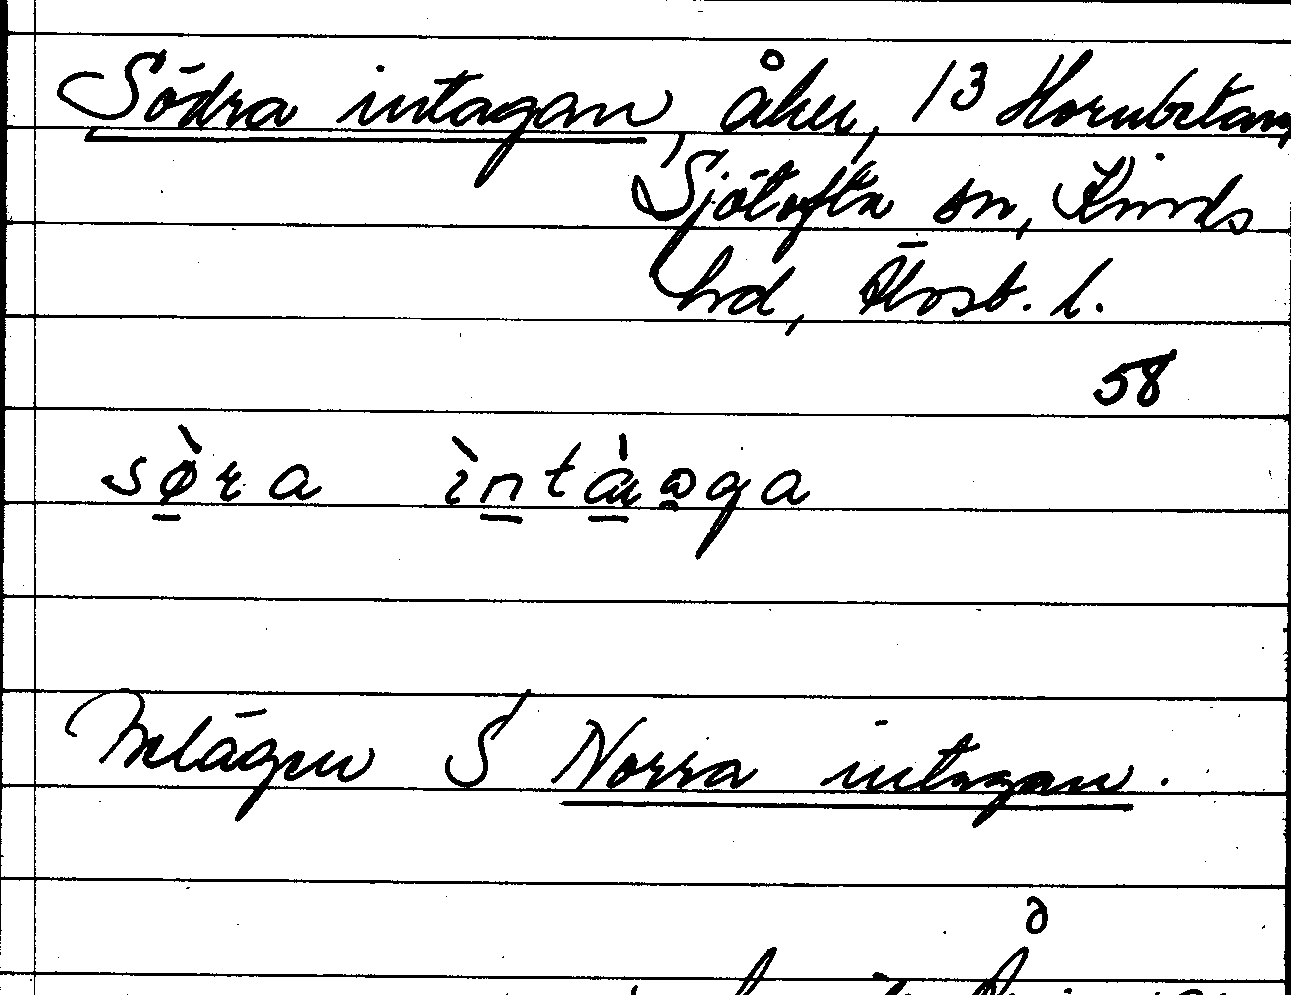 Södra intagan, åker, 13 Hornbetan,
Sjötofta sn, Kinds
hd, Älvsb. l.
58
sø̀ra ìntàaga
Belägen S Norra intagan.